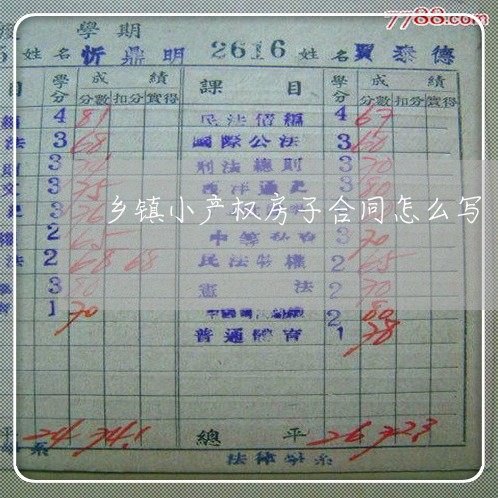 7788.com
學期
5 姓名 忻鼎明 2616 姓名 賈泰德
目 學分 成績 課目 學分 成績
分數 扣分 實得 分數 扣分 實得
4 81 民法債編 4 67
法 3 68 國際公法 3 60
3 刑法總則 3 70
文 3 75 西洋通史 3 80
3 76 3
乡镇小产权房子合同怎么写
權 2 65 3 70
法 2 68 68 民法物權 2 65
3 80 憲法 2 70
育 1 70 2 80
普通體育 1 78
平 24 74.1 總平 26 72.3
系 法律學系